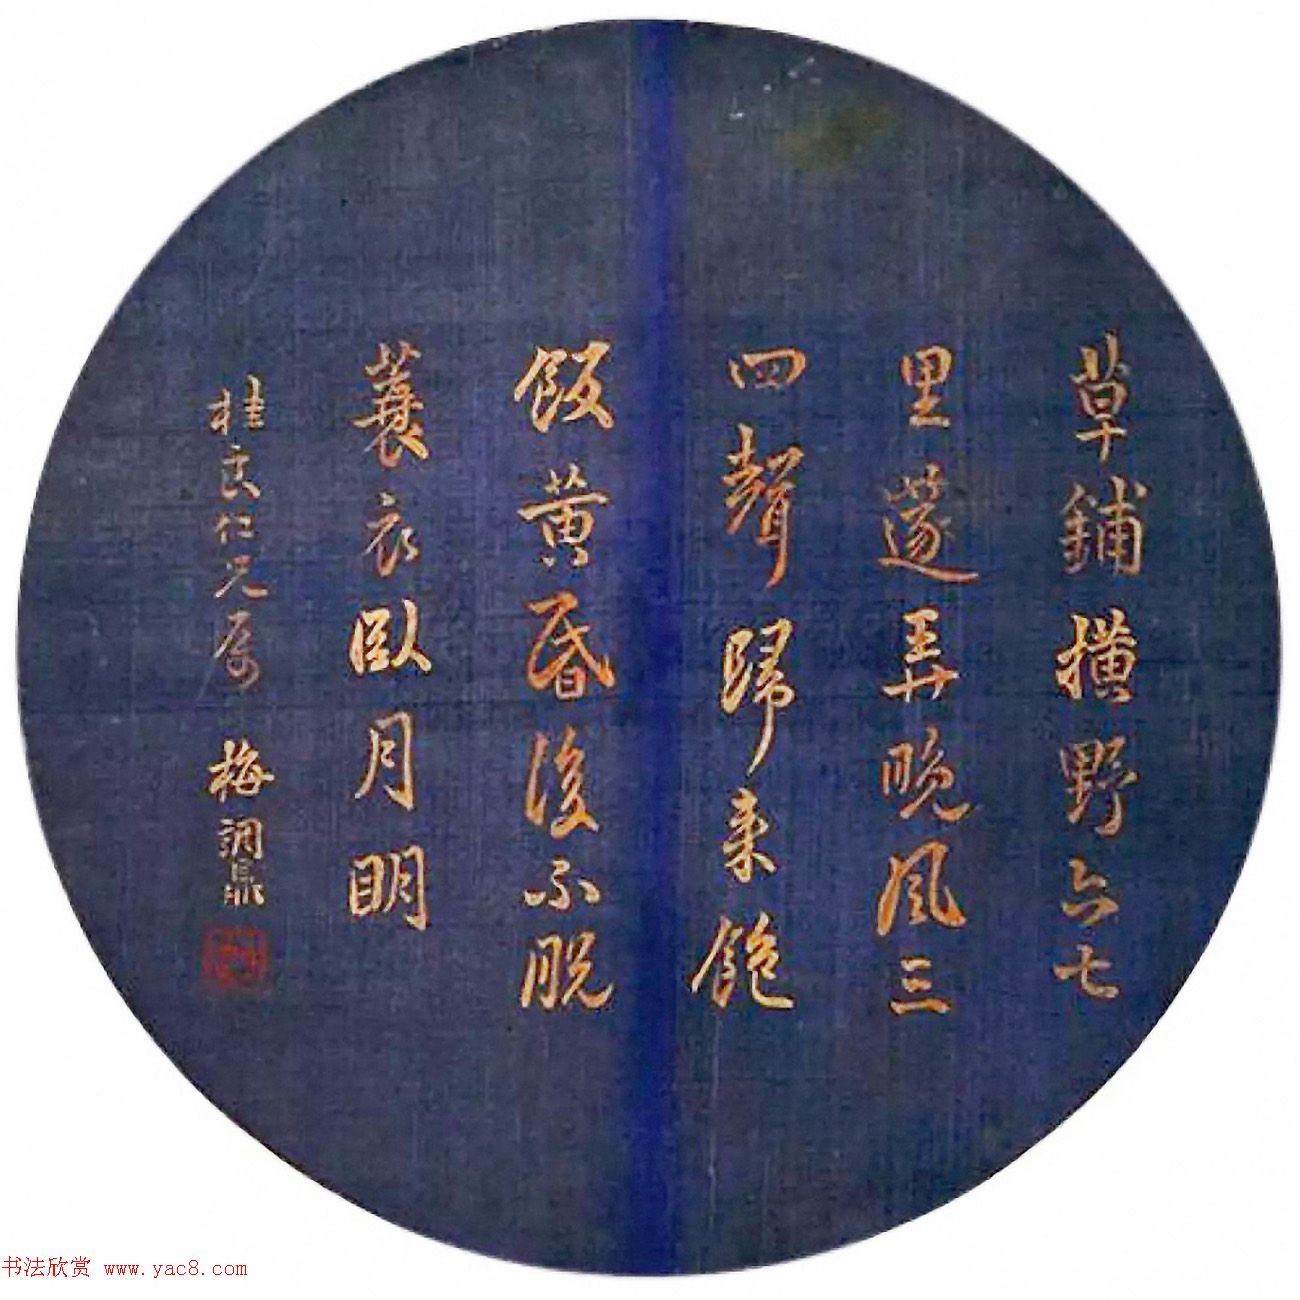 草鋪橫野六七
里篴弄晚風三
四聲歸来飽
飯黃昏後不脫
蓑衣臥月明
桂良仁兄屬 梅調鼎
书法欣赏 www.yac8.com